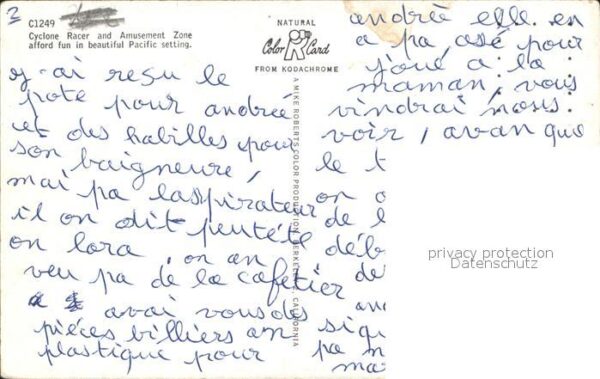 3
C1249
Cyclone Racer and Amusement Zone
afford fun in beautiful Pacific setting.
NATURAL
Color Card
FROM KODACHROME
A MIKE ROBERTS COLOR PRODUCTION, BERKELEY, CALIFORNIA
g-ai resu le
pote pour andrée
et des habilles pour
son baigneure,
mai pa laspirateur
il on dit peutété
on lora, on an
veu pa de la cafetier
avai vous des
pièces billiers an
plastique pour
andrée elle. en
a pa asé pour
joué a la
maman, vous
vindrai nous
voir, avan que
le t
on
de l
déb
de
an
si qu
pa m
ma
privacy protection
Datenschutz